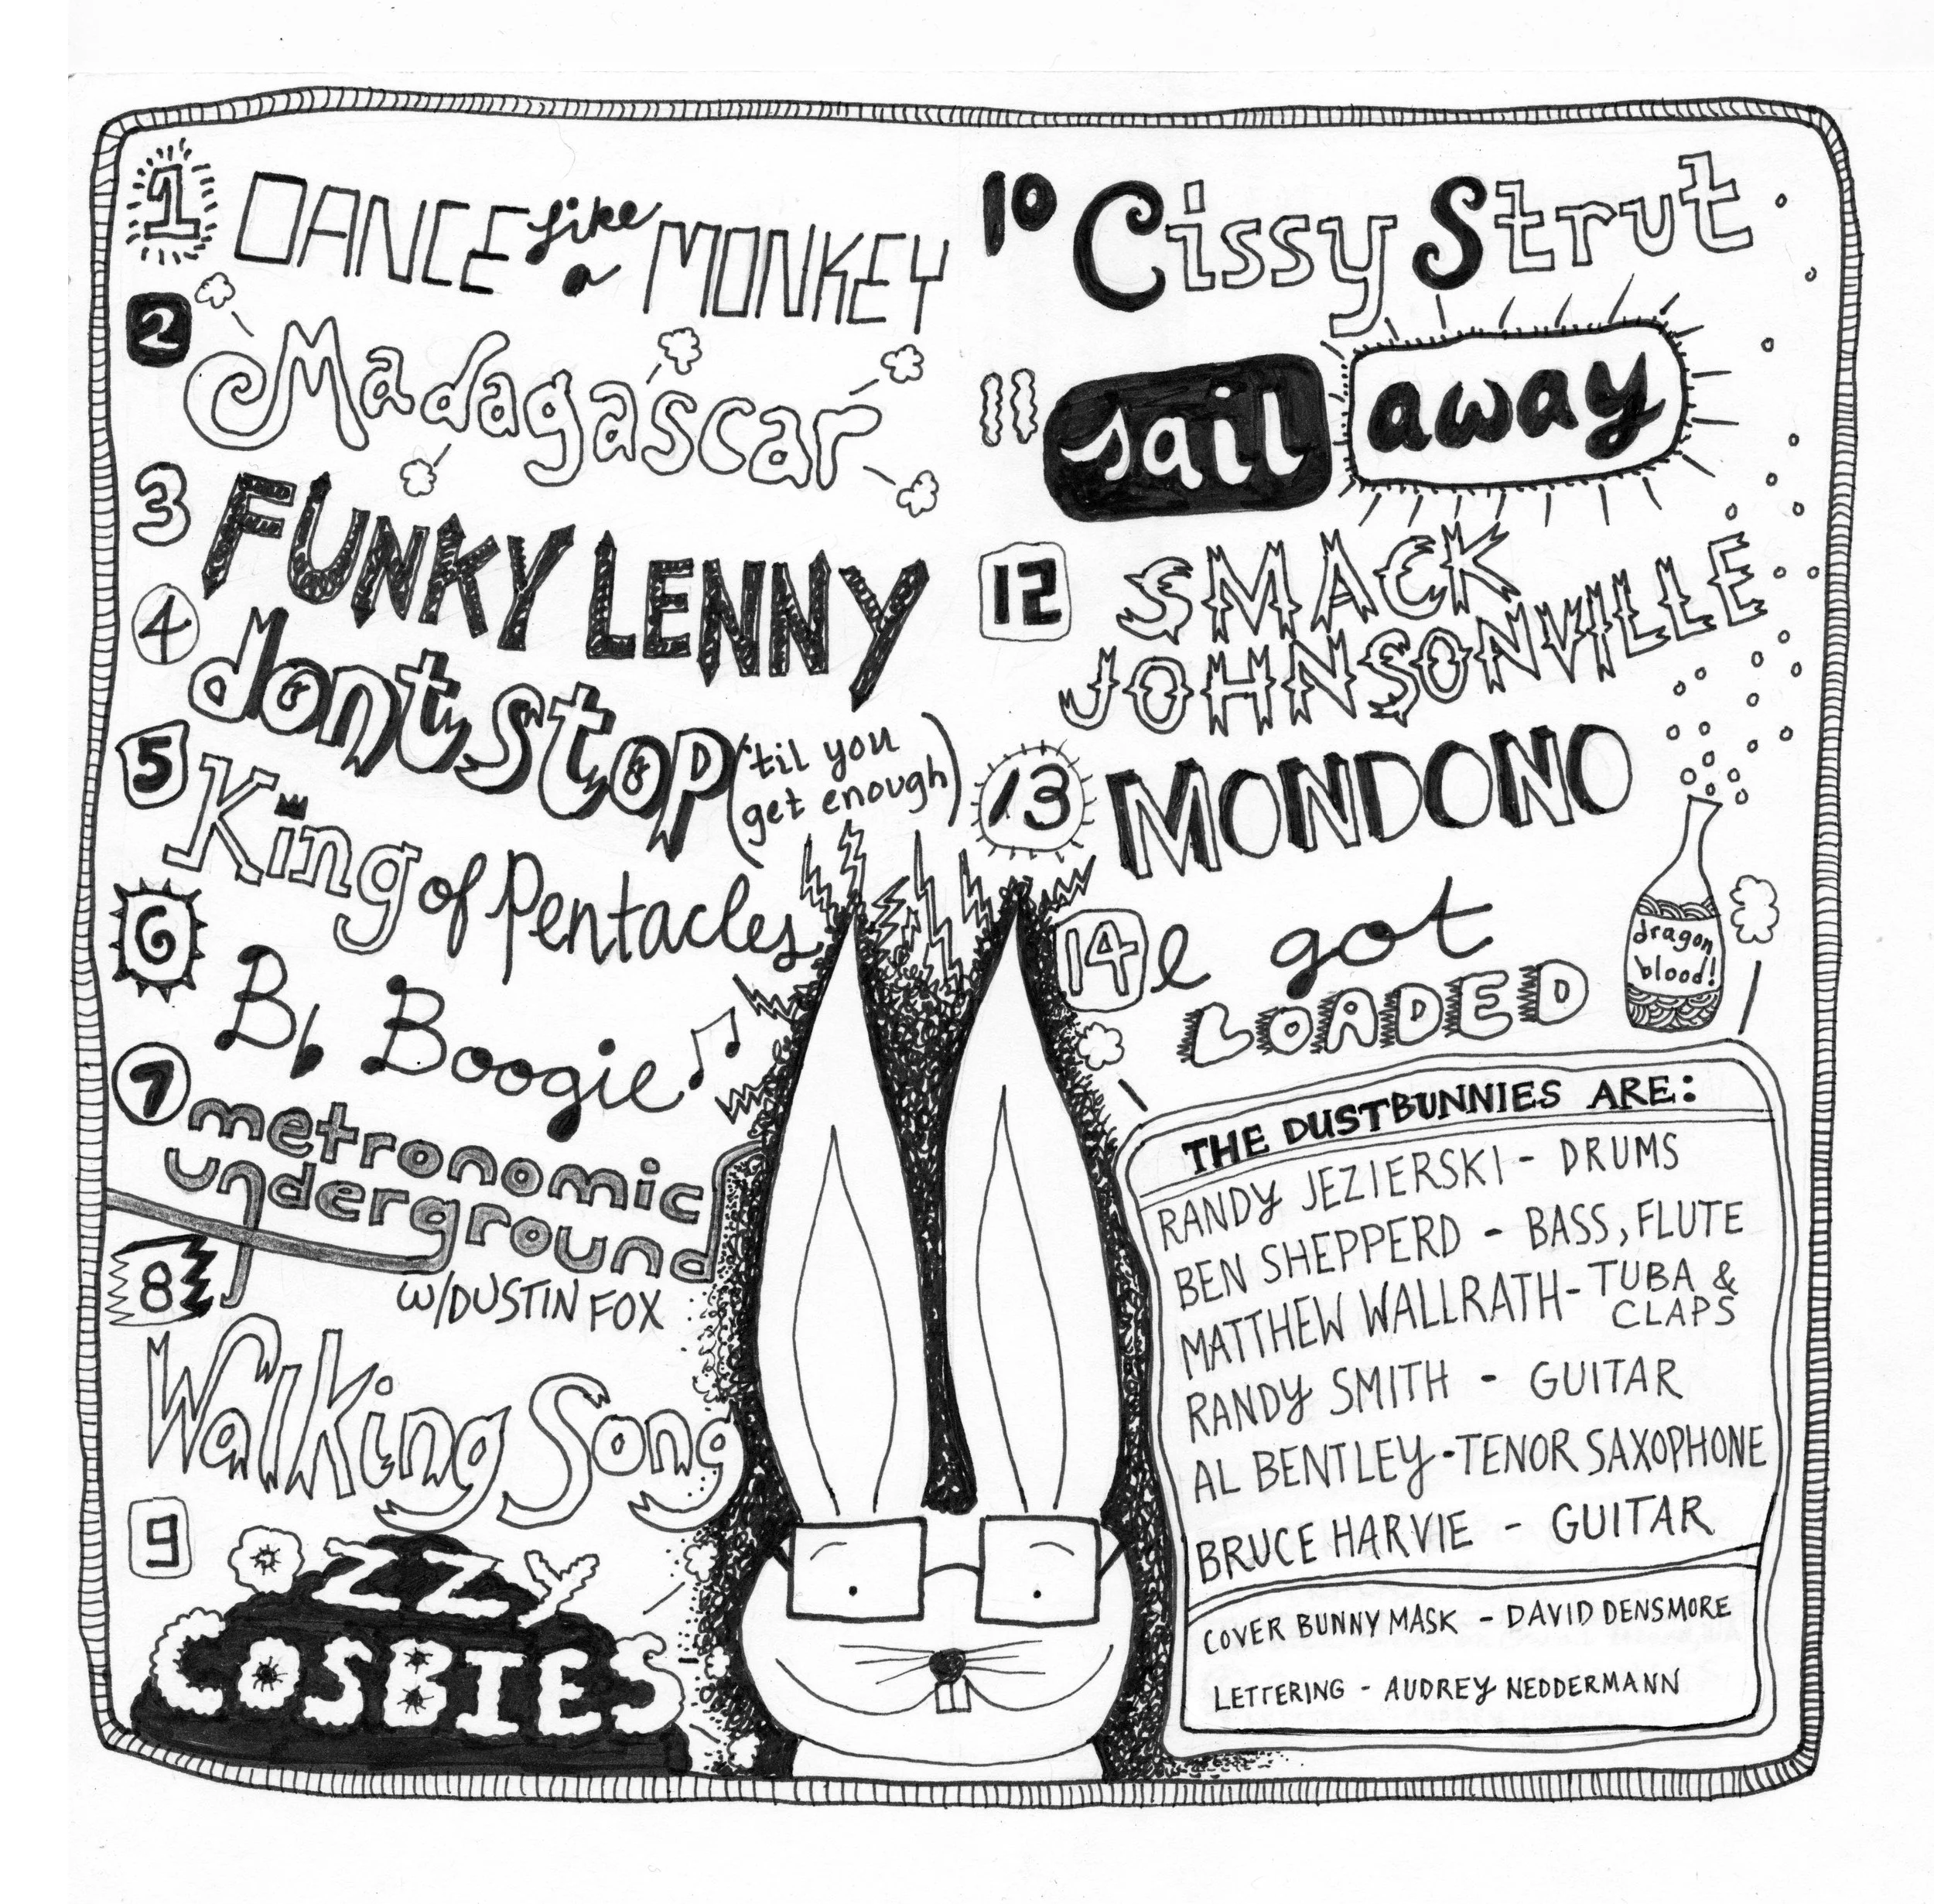 1 DANCE like a MONKEY
2 Madagascar
3 FUNKY LENNY
4 dont stop ('til you
get enough)
5 King of Pentacles
6 Bb Boogie
7 metronomic
underground
w/DUSTIN FOX
8 Walking Song
9 OZZY
COSBIES
10 Cissy Strut
11 sail away
12 SMACK
JOHNSONVILLE
13 MONDONO
14 I got
LOADED
dragon
blood!
THE DUSTBUNNIES ARE:
RANDY JEZIERSKI - DRUMS
BEN SHEPPERD - BASS, FLUTE
MATTHEW WALLRATH - TUBA &
CLAPS
RANDY SMITH - GUITAR
AL BENTLEY - TENOR SAXOPHONE
BRUCE HARVIE - GUITAR
COVER BUNNY MASK - DAVID DENSMORE
LETTERING - AUDREY NEDDERMANN